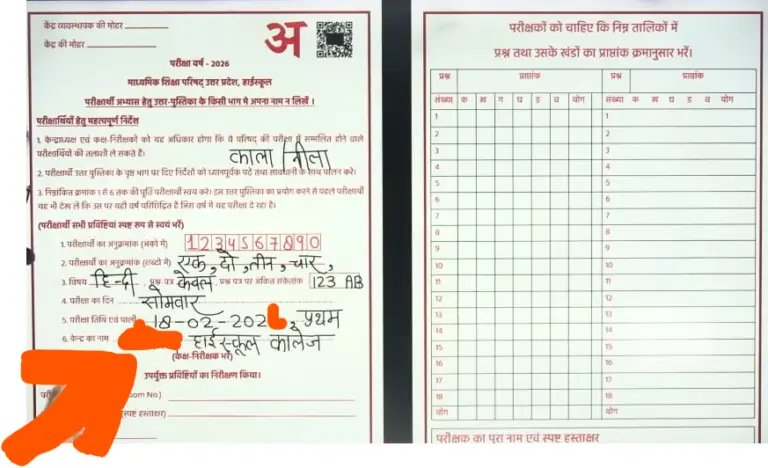 केंद्र व्यवस्थापक की मोहर
केंद्र की मोहर
अ
परीक्षा वर्ष - 2026
माध्यमिक शिक्षा परिषद् उत्तर प्रदेश, हाईस्कूल
परीक्षार्थी अभ्यास हेतु उत्तर-पुस्तिका के किसी भाग में अपना नाम न लिखें ।
परीक्षार्थियों हेतु महत्वपूर्ण निर्देश
1. केन्द्राध्यक्ष एवं कक्ष-निरीक्षकों को यह अधिकार होगा कि वे परिषद् की परीक्षा में सम्मलित होने वाले
परीक्षार्थियों की तलाशी ले सकते हैं।
काला / नीला
2. परीक्षार्थी उत्तर पुस्तिका के पृष्ठ भाग पर दिए निर्देशों को ध्यानपूर्वक पढ़ें तथा सावधानी के साथ पालन करें।
3. निम्नांकित क्रमांक 1 से 6 तक की पूर्ति परीक्षार्थी स्वयं करें। इस उत्तर पुस्तिका का प्रयोग करने से पहले परीक्षार्थी
यह भी देख लें कि उस पर यही वर्ष परिचिह्नित है जिस वर्ष में वह परीक्षा दे रहा है।
(परीक्षार्थी सभी प्रविष्टियां स्पष्ट रूप से स्वयं भरें)
1. परीक्षार्थी का अनुक्रमांक (अंको में) 1 2 3 4 5 6 7 8 9 0
2. परीक्षार्थी का अनुक्रमांक (शब्दो में) एक, दो, तीन, चार,
3. विषय हिन्दी प्रश्न पत्र केवल प्रश्न पत्र पर अंकित संकेतांक 123 AB
4. परीक्षा का दिन सोमवार
5. परीक्षा तिथि एवं पाली 18-02-202 , प्रथम
6. केन्द्र का नाम हाईस्कूल कॉलेज
(कक्ष-निरीक्षक भरें)
उपर्युक्त प्रविष्टियों का निरीक्षण किया।
oom No.)
(स्पष्ट हस्ताक्षर)
परीक्षकों को चाहिए कि निम्न तालिका में
प्रश्न तथा उसके खंडों का प्राप्तांक क्रमानुसार भरें।
प्रश्न प्राप्तांक प्रश्न प्राप्तांक
संख्या क ख ग घ ङ व योग संख्या क ख घ ङ व योग
1 1
2 2
3 3
4 4
5 5
6 6
7 7
8 8
9 9
10 10
11 11
12 12
13 13
14 14
15 15
16 16
17 17
18 18
योग योग
परीक्षक का पूरा नाम एवं स्पष्ट हस्ताक्षर